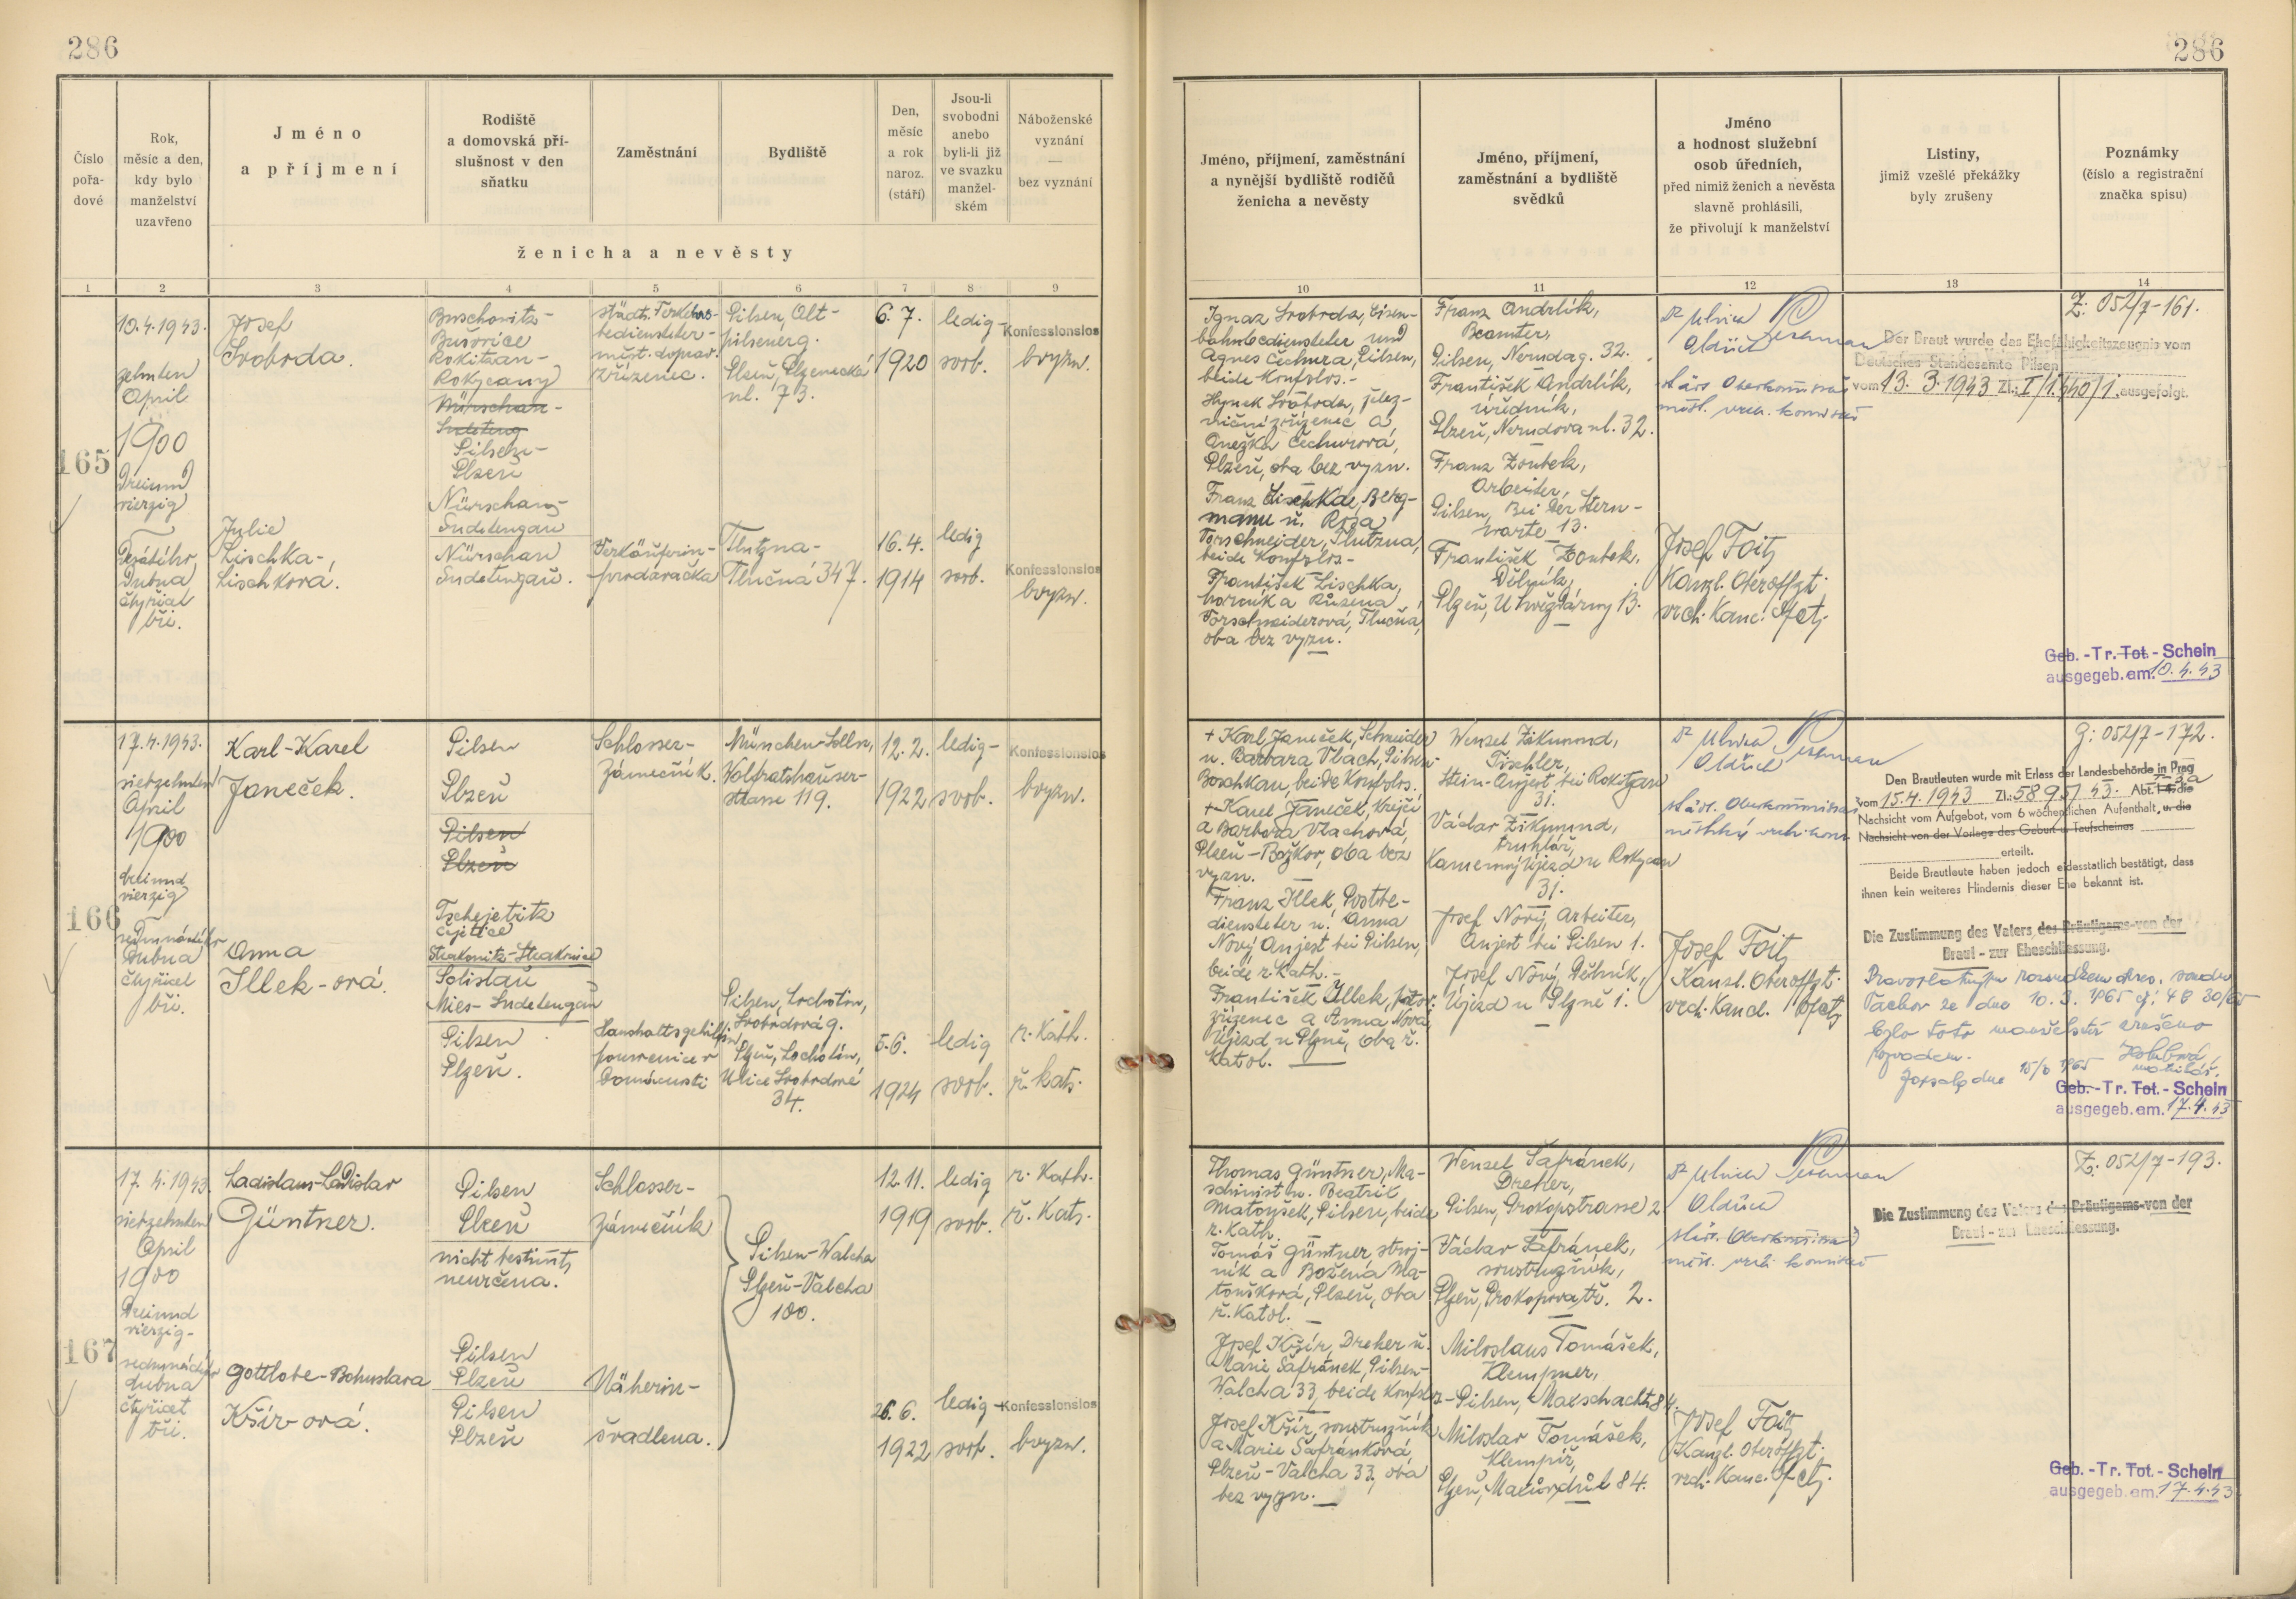 286
286
Číslo
pořa-
dové
Rok,
měsíc a den,
kdy bylo
manželství
uzavřeno
Jméno
a příjmení
Rodiště
a domovská pří-
slušnost v den
sňatku
Zaměstnání
Bydliště
Den,
měsíc
a rok
naroz.
(stáří)
Jsou-li
svobodni
anebo
byli-li již
ve svazku
manžel-
ském
Náboženské
vyznání
—
bez vyznání
ženicha a nevěsty
Jméno, přijmení, zaměstnání
a nynější bydliště rodičů
ženicha a nevěsty
Jméno, příjmení,
zaměstnání a bydliště
svědků
Jméno
a hodnost služební
osob úředních,
před nimiž ženich a nevěsta
slavně prohlásili,
že přivolují k manželství
Listiny,
jimiž vzešlé překážky
byly zrušeny
Poznámky
(číslo a registrační
značka spisu)
1
2
3
4
5
6
7
8
9
10
11
12
13
14
165
10.4.1943.
zehnten
April
1900
Dreiund
vierzig
Desátého
Dubna
čtyřicet
tři.
Josef
Svoboda.
Julie
Lischka-,
Lischkova.
Buschowitz-
Bušovice
Rokitzan-
Rokycany
Nürschan-
Sudetengau
Pilsen-
Plzeň
Nürschan-
Sudetengau
Nürschan
Sudetengau.
städt. Verkehrs-
bediensteter-
měst. doprav.
zřízenec.
Verkäuferin-
prodavačka
Pilsen, Alt-
pilsenerg.
Plzeň, Plzenecká
ul. 73.
Tlutzna-
Tlučná 347.
6.7.
1920
16.4.
1914
ledig-
svob.
ledig
svob.
Konfessionslos
bvyzn.
Konfessionslos
bvyzn.
Ignaz Svoboda, Eisen-
bahnbediensteter und
Agnes Čechura, Pilsen,
beide Konfslos.-
Hynek Svoboda, želez-
niční zřízenec a
Anežka Čechurová,
Plzeň, oba bez vyzn.
Franz Lischka, Berg-
mann u. Rosa
Vorschneider, Tlutzna,
beide Konfslos.-
František Lischka,
horník a Růžena
Vorschneiderová, Tlučná,
oba bez vyzn.
Franz Andrlík,
Beamter,
Pilsen, Nerudag. 32.
František Andrlík,
úředník,
Plzeň, Nerudova ul. 32.
Franz Zoubek,
Arbeiter,
Pilsen, Bei der Stern-
warte 13.
František Zoubek,
Dělník,
Plzeň, U hvězdárny 13.
Dr Ulrich
Oldřich
städt. Oberkommissar
měst. vrch. komisař
Josef Foitz
Kanzl. Oberoffzt.
vrch. Kanc. Ofctj.
Der Braut wurde das Ehefähigkeitszeugnis vom
Deutsches Standesamte Pilsen
vom 13. 3. 1943 Zl.: I/1.440/1. ausgefolgt.
Z: 052/7-161.
Geb.-Tr.Tot.-Schein
ausgegeb.am. 10.4.43
166
17.4.1943.
siebzehnten
April
1900
dreiund
vierzig
sedmnáctého
Dubna
čtyřicet
tři.
Karl-Karel
Janeček.
Anna
Illek-ová.
Pilsen
Plzeň
Pilsen
Plzeň
Tschejetitz
Čejetice
Strakonitz-Strakonice
Solislau
Mies-Sudetengau
Pilsen
Plzeň.
Schlosser-
Zámečník.
Haushaltsgehilfin
pomocnice v
Domácnosti
München-Solln,
Wolfratshauser-
strasse 119.
Pilsen, Lochotin,
Svobodová g.
Plzeň, Lochotín,
Ulice Svobodové
34.
12.2.
1922
5.6.
1924
ledig-
svob.
ledig
svob.
Konfessionslos
bvyzn.
r. Kath.
ř. kats.
+ Karl Janeček, Schneider
u. Barbara Vlach, Pilsen-
Boschkau, beide Konfslos.
+ Karel Janeček, krejčí
a Barbora Vlachová,
Plzeň-Božkov, oba bez
vyzn.
Franz Illek, Postbe-
diensteter u. Anna
Nový, Anjest bei Pilsen,
beide r. Kath.-
František Illek, poštov.
zřízenec a Anna Nová,
Újezd u Plzně, oba ř.
Katol.
Wenzel Zikmund,
Tischler,
Stein-Aujest bei Rokitzan
31.
Václav Zikmund,
truhlář,
Kamenný Újezd u Rokycan
31.
Josef Nový, Arbeiter,
Anjest bei Pilsen 1.
Josef Nový, Dělník,
Újezd u Plzně 1.
Dr Ulrich
Oldřich
städt. Oberkommissar
městský vrch. kom.
Josef Foitz
Kanzl. Oberoffzt.
vrch. Kancl. Ofctj.
Den Brautleuten wurde mit Erlass der Landesbehörde in Prag
vom 15.4.1943 Zl.: 5895/43. Abt. I-3a die
Nachsicht vom Aufgebot, vom 6 wöchentlichen Aufenthalt, u. die
Nachsicht von der Vorlage des Geburt u Taufscheines
erteilt.
Beide Brautleute haben jedoch eidesstatlich bestätigt, dass
ihnen kein weiteres Hindernis dieser Ehe bekannt ist.
Die Zustimmung des Vaters des Bräutigams-von der
Braut - zur Eheschliessung.
Pravoplatným rozsudkem okres. soudu
Tachov ze dne 10. 3. 1965
bylo toto manželství zrušeno
rozvodem.
Zapsalo dne
matrikář.
Z: 052/7-172.
Geb.-Tr. Tot.-Schein
ausgegeb.am. 17.4.43
167
17.4.1943.
siebzehnten
April
1900
Dreiund
vierzig-
sedmnáctého
dubna
čtyřicet
tři.
Ladislaus-Ladislav
Güntner.
Gottlobe-Bohuslava
Kšír-ová.
Pilsen
Plzeň
nicht bestimmt,
neurčena.
Pilsen
Plzeň
Pilsen
Plzeň
Schlosser-
zámečník
Näherin-
švadlena.
Pilsen-Walcha
Plzeň-Valcha
100.
12.11.
1919
26.6.
1922
ledig
svob.
ledig-
svob.
r. Kath.
ř. Kats.
Konfessionslos
bvyzn.
Thomas Güntner, Ma-
schinist u. Beatrix
Matoušek, Pilsen, beide
r. Kath.
Tomáš Güntner, stroj-
ník a Božena Ma-
toušková, Plzeň, oba
ř. Katol.
Josef Kšír, Dreher u.
Marie Šafránek, Pilsen-
Walcha 33, beide Konfslos-
Josef Kšír, soustružník
a Marie Šafránková,
Plzeň-Valcha 33, oba
bez vyzn.
Wenzel Šafránek,
Dreher,
Pilsen, Prokopstrasse 2
Václav Šafránek,
soustružník,
Plzeň, Prokopova tř. 2.
Miloslaus Tomášek,
Klempner,
Pilsen, Maxschacht 84.
Miloslav Tomášek,
Klempíř,
Plzeň, Macův důl 84.
Dr Ulrich
Oldřich
städt. Oberkommissar
měst. vrch. komisař
Josef Foitz
Kanzl. Oberoffzt.
vrch. Kanc. Ofctj.
Die Zustimmung des Vaters des Bräutigams-von der
Braut - zur Eheschliessung.
Z: 052/7-193.
Geb.-Tr. Tot.-Schein
ausgegeb.am. 17.4.43